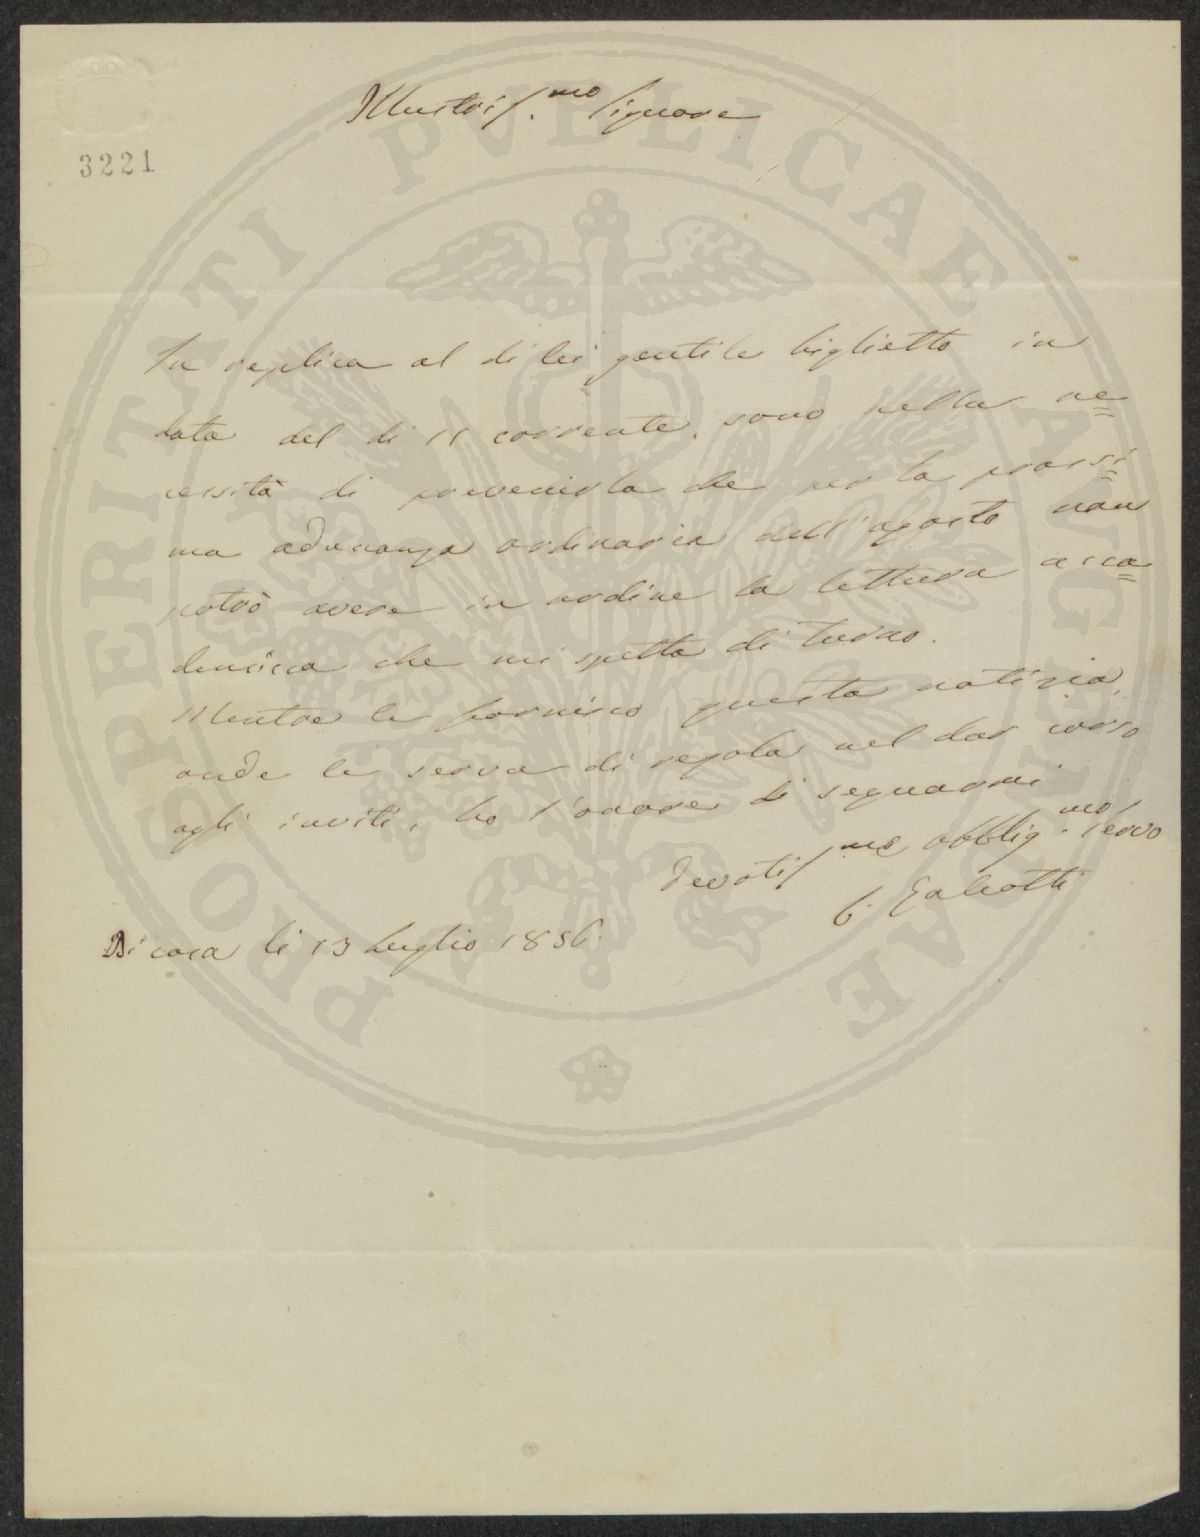 Illustriss.mo Signore
3221
In replica al di lei gentile biglietto in
data del dì 11 corrente, sono nella ne=
cessità di prevenirla che per la prossi=
ma adunanza ordinaria dell'agosto non
potrò avere in ordine la lettura acca=
demica che mi spetta di turno.
Mentre le fornisco questa notizia,
onde le serva di regola nel dar corso
agli inviti, ho l'onore di segnarmi
Devotiss.mo obblig.mo Servo
L. Galeotti
Di casa li 13 Luglio 1856.
PROSPERITATI PVBLICAE AVGENDAE